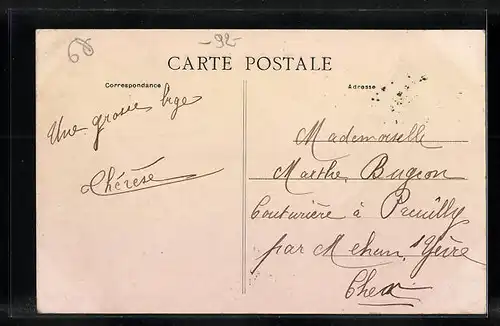 68
-92-
CARTE POSTALE
Correspondance
Adresse
Une grosse bige
Thérèse
Mademoiselle
Marthe Bugeon
Couturière à Preuilly
par Mehun s/ Yèvre
Cher